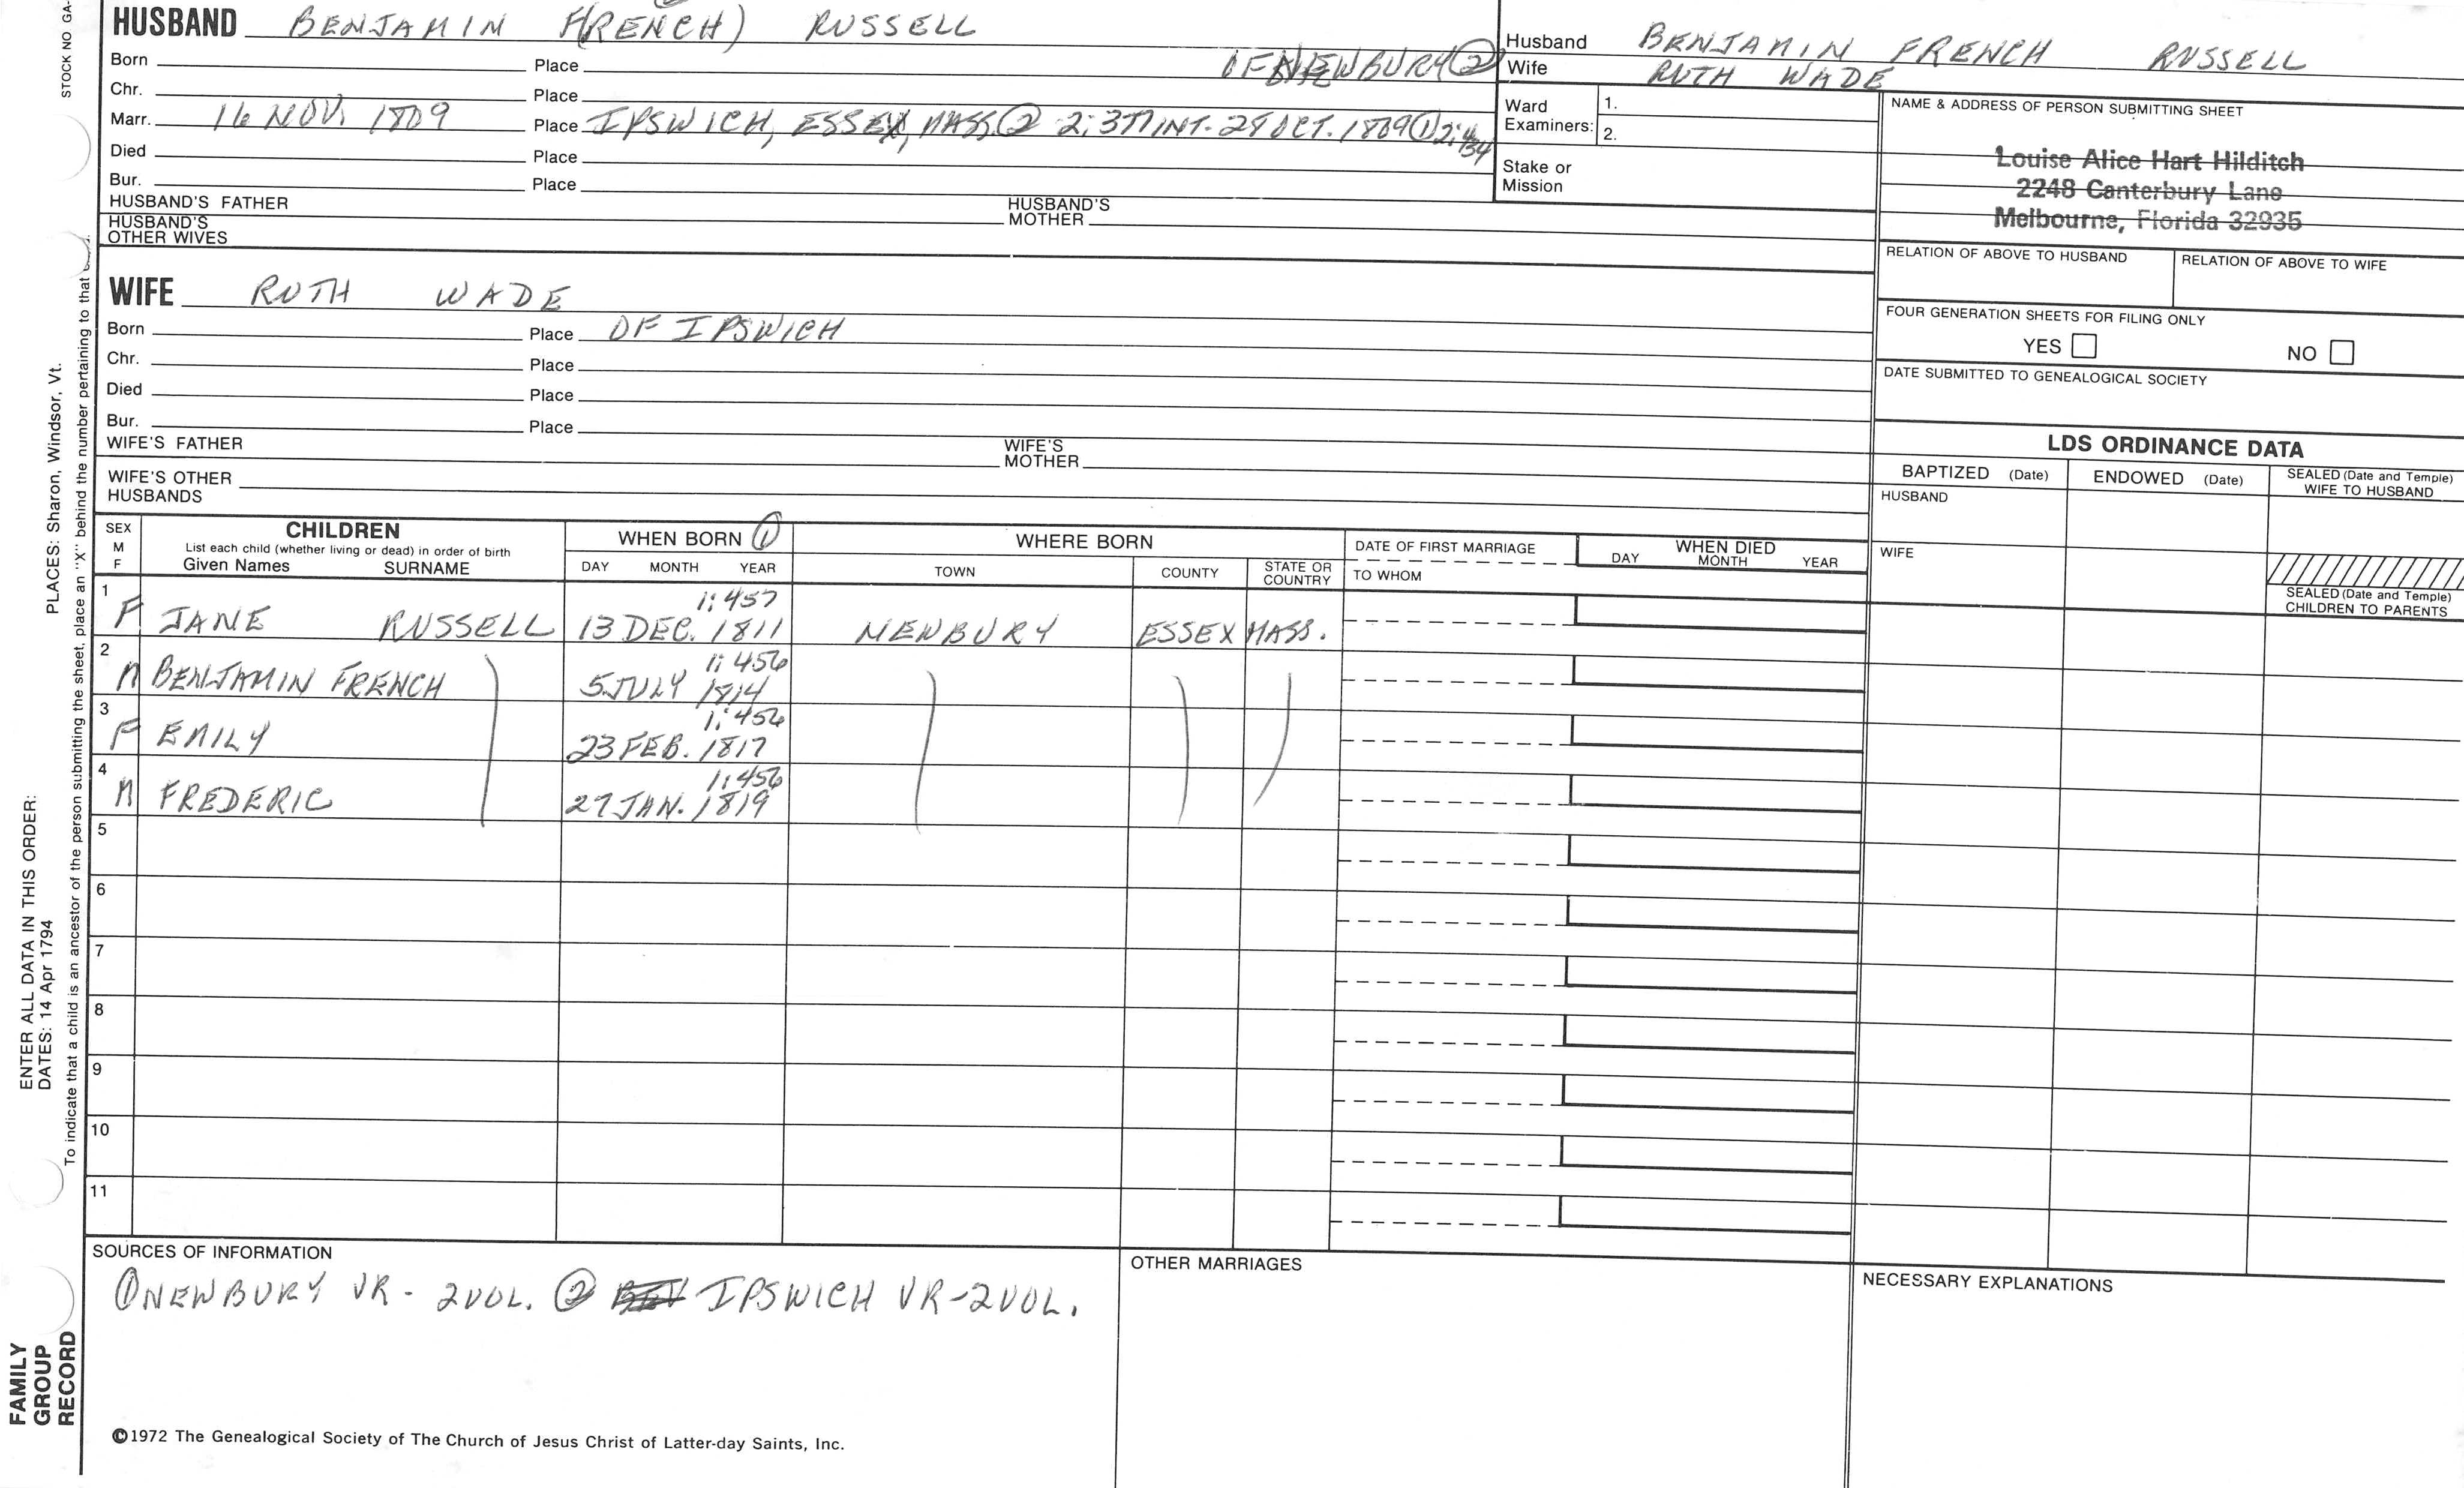 STOCK NO GA-
HUSBAND BENJAMIN F(RENCH) RUSSELL
Born Place OF NEWBURY ②
Chr. Place
Marr. 16 NOV. 1809 Place IPSWICH, ESSEX, MASS. ② 2:377 INT. 28 OCT. 1809 ① 2:434
Died Place
Bur. Place
HUSBAND'S FATHER HUSBAND'S MOTHER
HUSBAND'S OTHER WIVES
WIFE RUTH WADE
Born Place OF IPSWICH
Chr. Place
Died Place
Bur. Place
WIFE'S FATHER WIFE'S MOTHER
WIFE'S OTHER HUSBANDS
Husband BENJAMIN FRENCH RUSSELL
Wife RUTH WADE
Ward Examiners: 1.
2.
Stake or Mission
NAME & ADDRESS OF PERSON SUBMITTING SHEET
Louise Alice Hart Hilditch
2248 Canterbury Lane
Melbourne, Florida 32935
RELATION OF ABOVE TO HUSBAND RELATION OF ABOVE TO WIFE
FOUR GENERATION SHEETS FOR FILING ONLY
YES NO
DATE SUBMITTED TO GENEALOGICAL SOCIETY
LDS ORDINANCE DATA
BAPTIZED (Date) ENDOWED (Date) SEALED (Date and Temple) WIFE TO HUSBAND
HUSBAND
WIFE
SEALED (Date and Temple) CHILDREN TO PARENTS
SEX M F
CHILDREN
List each child (whether living or dead) in order of birth
Given Names SURNAME
WHEN BORN ①
DAY MONTH YEAR
WHERE BORN
TOWN COUNTY STATE OR COUNTRY
DATE OF FIRST MARRIAGE
TO WHOM
WHEN DIED
DAY MONTH YEAR
1 F JANE RUSSELL 13 DEC. 1811 1:457 NEWBURY ESSEX MASS.
2 M BENJAMIN FRENCH 5 JULY 1814 1:456
3 F EMILY 23 FEB. 1817 1:456
4 M FREDERIC 27 JAN. 1819 1:456
5
6
7
8
9
10
11
SOURCES OF INFORMATION
① NEWBURY VR - 2 VOL. ② IPSWICH VR - 2 VOL.
OTHER MARRIAGES
NECESSARY EXPLANATIONS
©1972 The Genealogical Society of The Church of Jesus Christ of Latter-day Saints, Inc.
ENTER ALL DATA IN THIS ORDER:
DATES: 14 Apr 1794
PLACES: Sharon, Windsor, Vt.
To indicate that a child is an ancestor of the person submitting the sheet, place an "X" behind the number pertaining to that
FAMILY
GROUP
RECORD